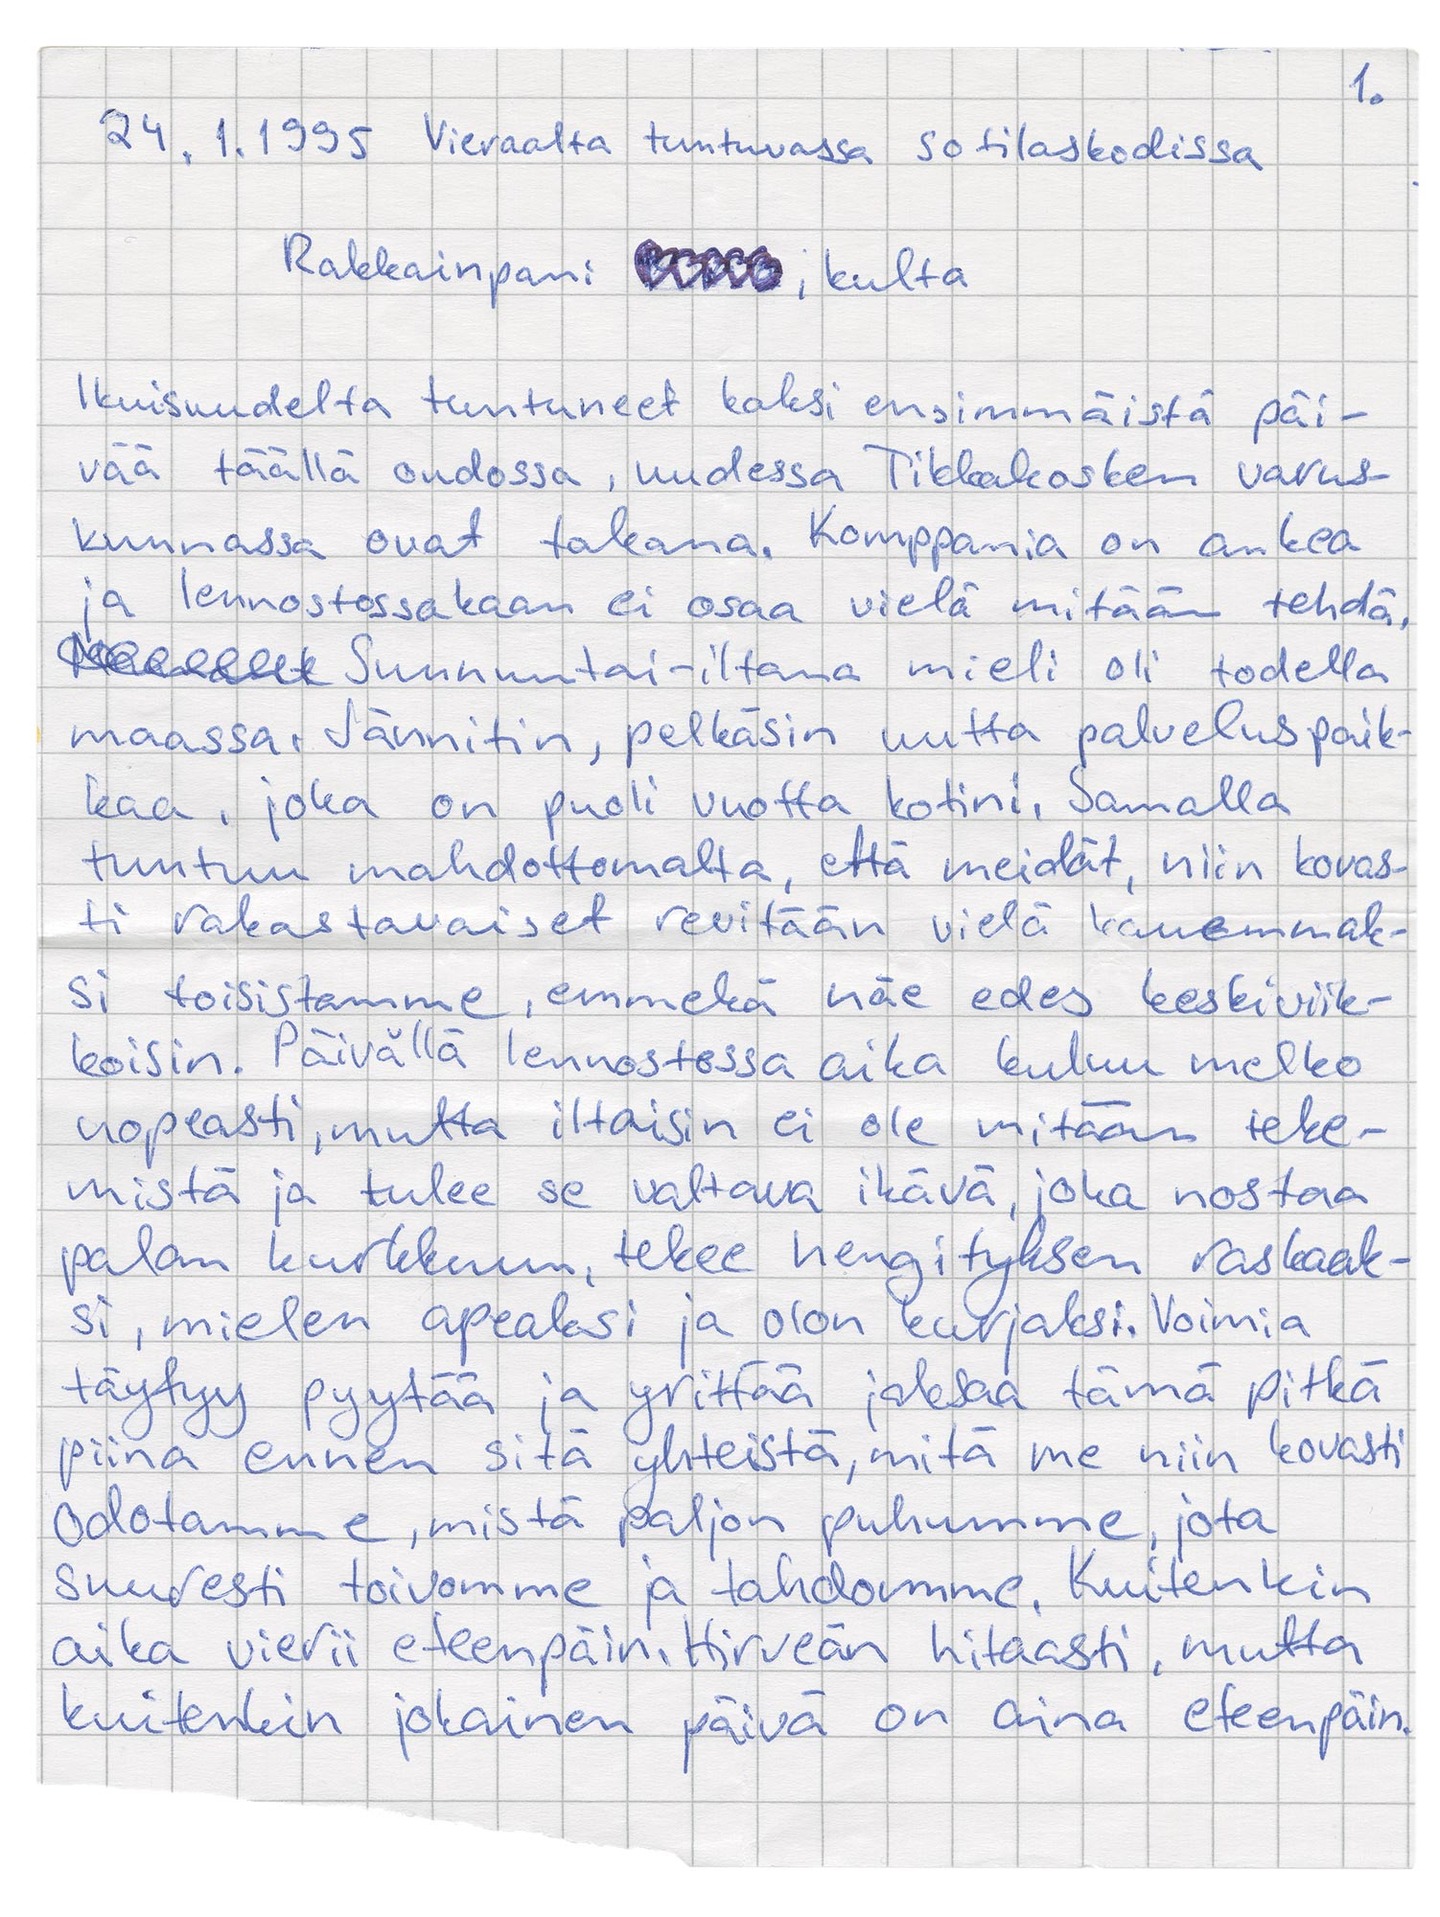 1.
24.1.1995 Vieraalta tuntuvassa sotilaskodissa
Rakkainpani , kulta
Ikuisuudelta tuntuneet kaksi ensimmäistä päi-
vää täällä oudossa, uudessa Tikkakosken varus-
kunnassa ovat takana. Komppania on ankea
ja lennostossakaan ei osaa vielä mitään tehdä.
Sunnuntai-iltana mieli oli todella
maassa. Jännitin, pelkäsin uutta palveluspaik-
kaa, joka on puoli vuotta kotini. Samalla
tuntuu mahdottomalta, että meidät, niin kovas-
ti rakastavaiset revitään vielä kauemmak-
si toisistamme, emmekä näe edes keskiviik-
koisin. Päivällä lennostossa aika kuluu melko
nopeasti, mutta iltaisin ei ole mitään teke-
mistä ja tulee se valtava ikävä, joka nostaa
palan kurkkuun, tekee hengityksen raskaak-
si, mielen apeaksi ja olon kurjaksi. Voimia
täytyy pyytää ja yrittää jaksaa tämä pitkä
piina ennen sitä yhteistä, mitä me niin kovasti
odotamme, mistä paljon puhumme, jota
suuresti toivomme ja tahdomme. Kuitenkin
aika vierii eteenpäin. Hirveän hitaasti, mutta
kuitenkin jokainen päivä on aina eteenpäin.